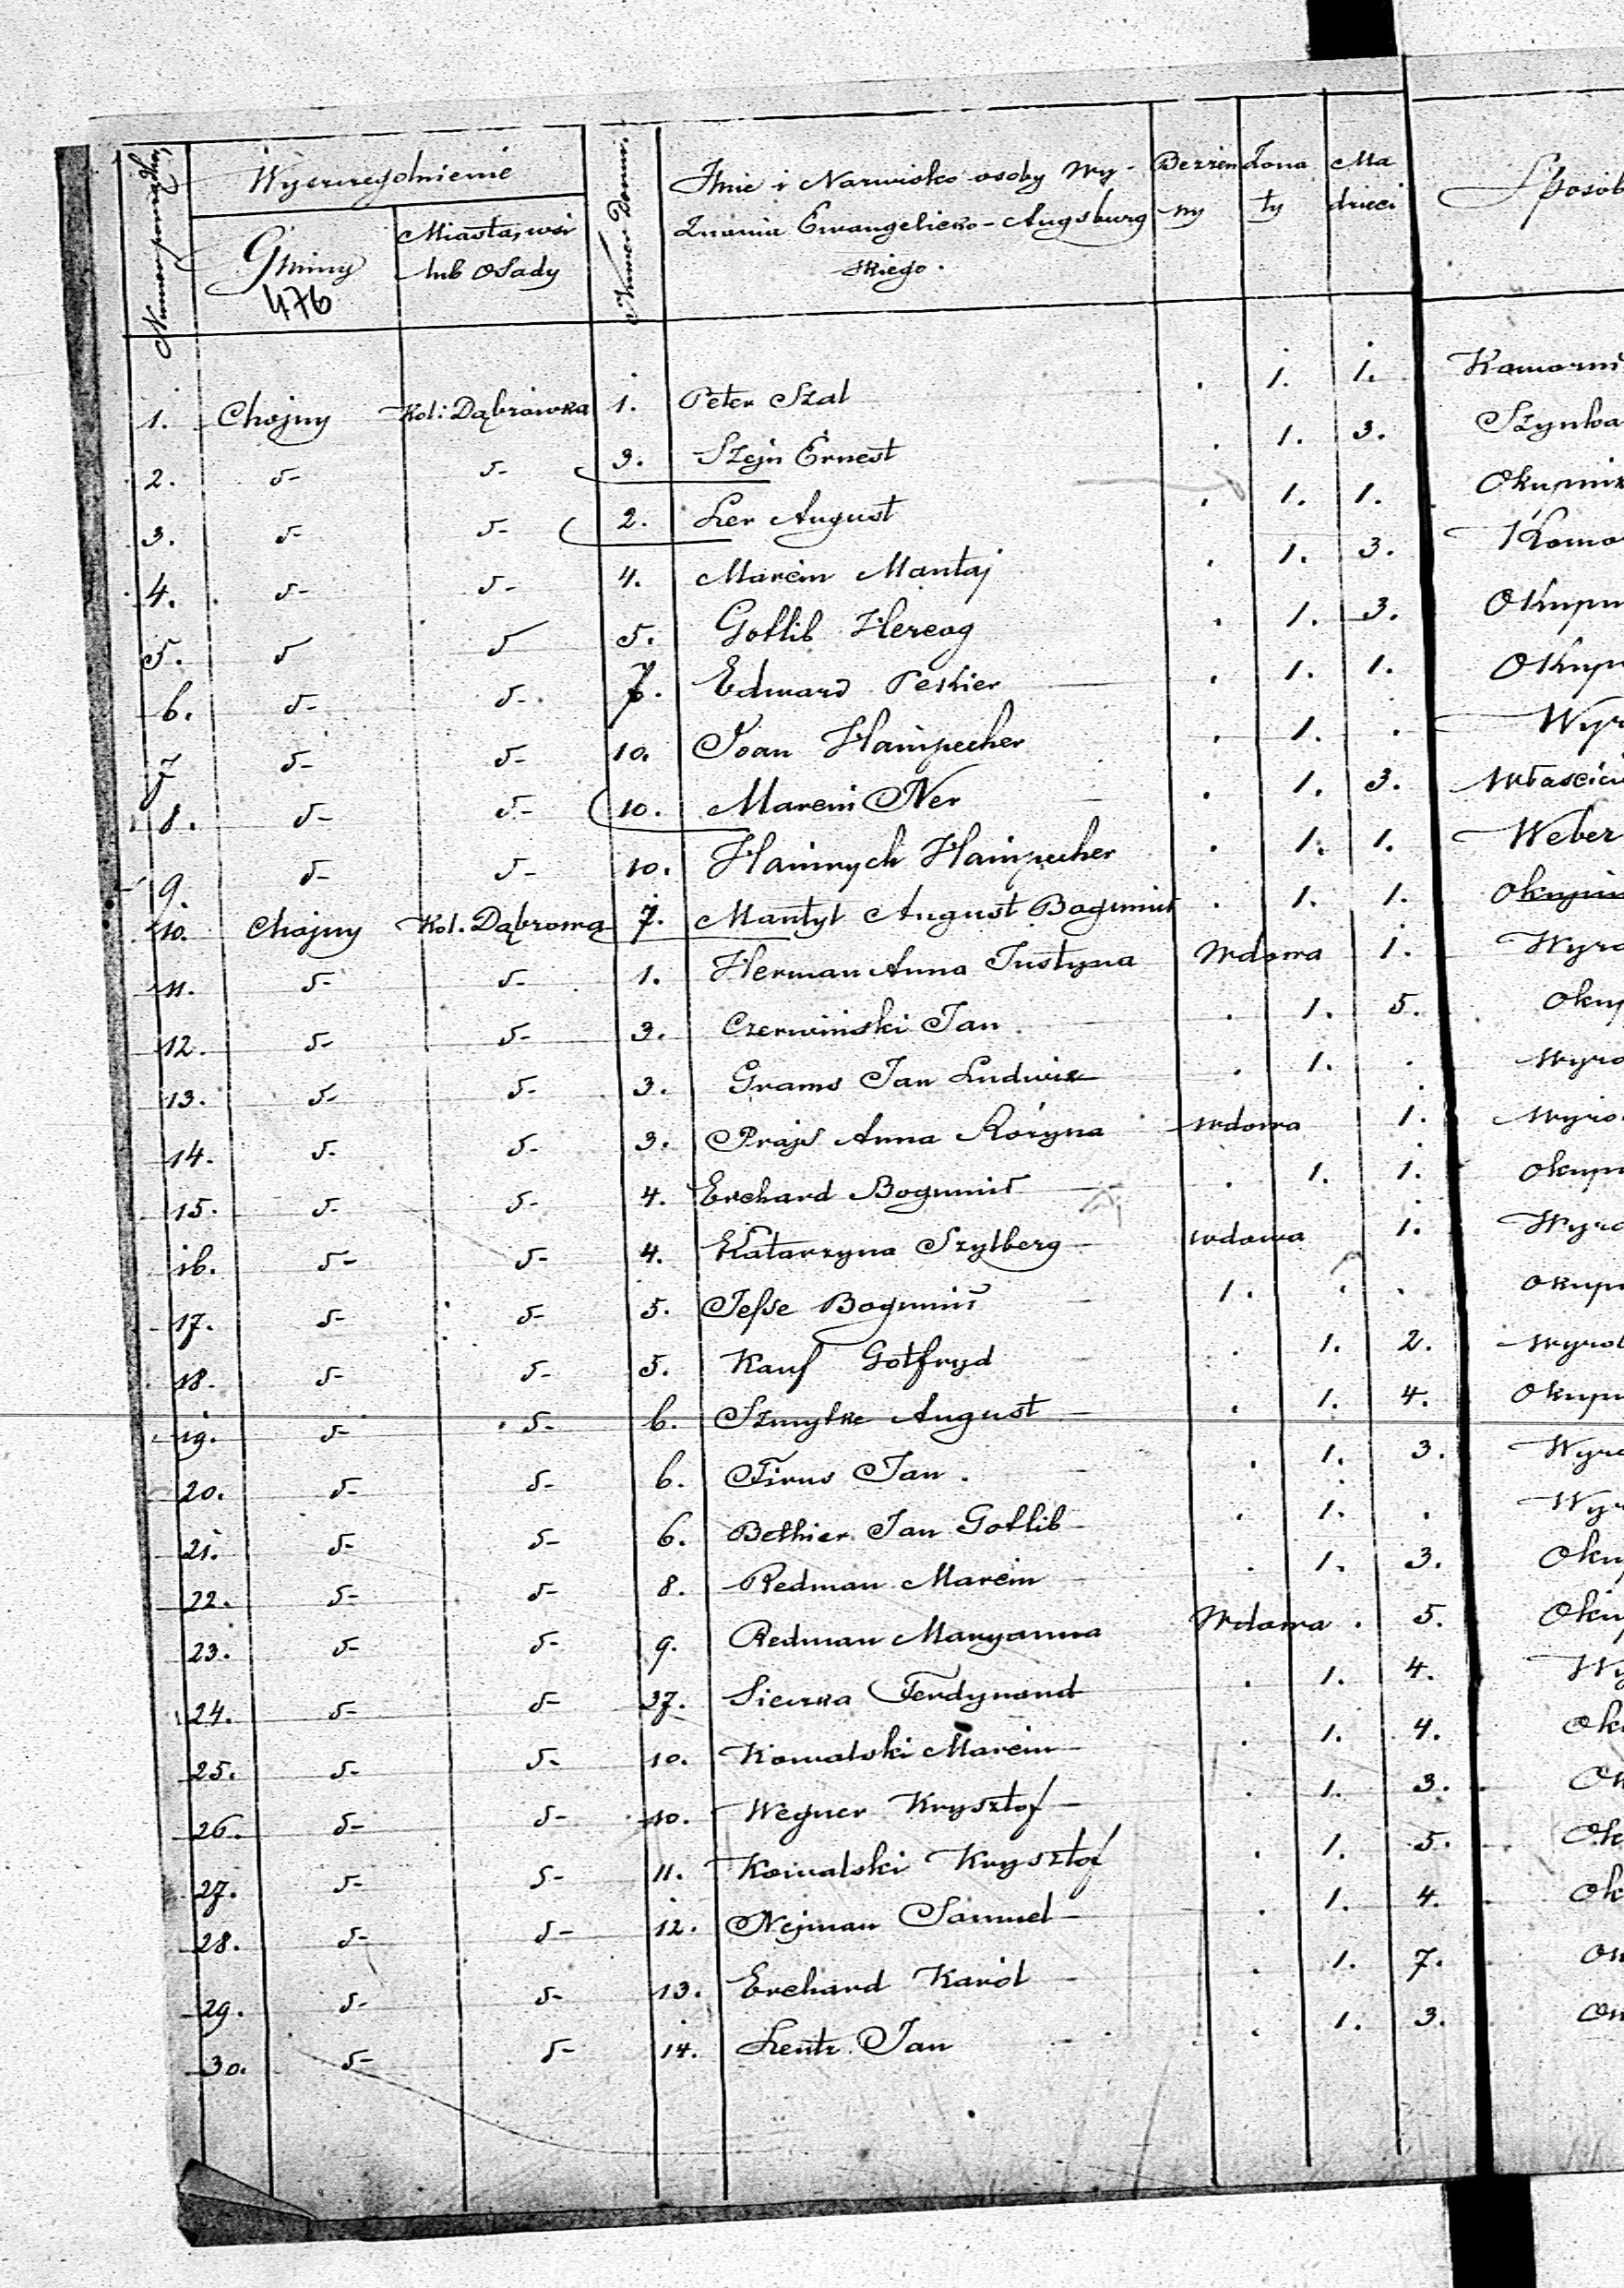 Numer porządku
Wyszczególnienie
Gminy
476
Miasta, wsi
lub Osady
Numer Domu
Imie i Nazwisko osoby Wy-
znania Ewangelicko-Augsburg
skiego.
Bezżen
ny
Żona
ty
Ma
dzieci
Sposób
1. Chojny Kol: Dąbrówka 1. Peter Szal . 1. 1.
2. 5- 5- 3. Sztejn Ernest . 1. 3. Szynka
3. 5- 5- 2. Ler August . 1. 1.
4. 5- 5- 4. Marcin Mantaj . 1. 3. Komo
5. 5 5 5. Gotlib Hercog . 1. 3. Okupn
6. 5- 5- 7. Edward Peskier . 1. 1. Okup
7 5- 5- 10. Joan Hainpecher . 1. . Wyr
8. 5- 5- 10. Marcin Ner . 1. 3. Właścici
9. 5- 5- 10. Hainrych Hainpecher . 1. 1. Weber
10. Chojny Kol. Dąbrowa 7. Mantyl August Bogumił . 1. 1.
11. 5- 5- 1. Herman Anna Justyna Wdowa 1. Wyro
12. 5- 5- 3. Czerwiński Jan . 1. 5. Okup
13. 5- 5- 3. Grams Jan Ludwik . 1. . wyro
14. 5- 5- 3. Prajs Anna Rozyna wdowa 1. wyro
15. 5- 5- 4. Erchard Bogumił . 1. 1. okupn
16. 5- 5- 4. Katarzyna Szylberg wdowa 1. Wyro
17. 5- 5- 5. Jesse Bogumił 1. . . okupn
18. 5- 5- 5. Kauf Gotfryd . 1. 2. wyrob
19. 5- 5- 6. Szmytke August . 1. 4. Okupn
20. 5- 5- 6. Firus Jan . . 1. 3. Wyro
21. 5- 5- 6. Bethier Jan Gotlib . 1. . Wyr
22. 5- 5- 8. Redman Marcin . 1. 3. Okup
23. 5- 5- 9. Redman Maryanna Wdowa . 5. Okup
24. 5- 5- 37. Ferdynand . 1. 4. Wy
25. 5- 5- 10. Kowalski Marcin . 1. 4. Oku
26. 5- 5- 10. Wegner Krysztof . 1. 3. Ok
27. 5- 5- 11. Kowalski Krysztof . 1. 5. Ok
28. 5- 5- 12. Nejman Samuel . 1. 4. Ok
29. 5- 5- 13. Erchard Karól . 1. 7. Ok
30. 5- 5- 14. Lentz Jan . 1. 3. Ok